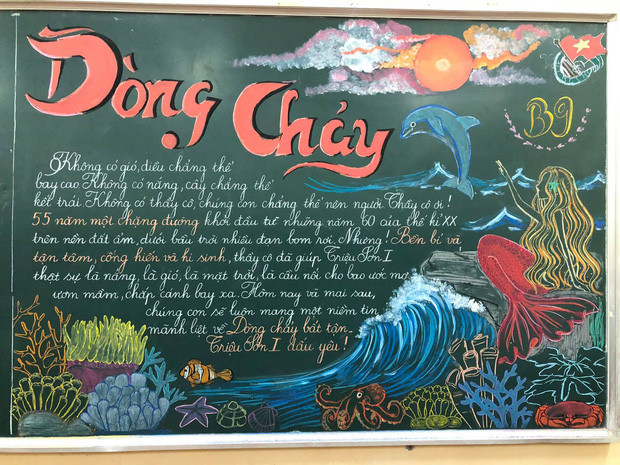 Dòng Chảy
B9
Không có gió, diều chẳng thể
bay cao. Không có nắng, cây chẳng thể
kết trái. Không có thầy cô, chúng con chẳng thể nên người. Thầy cô ơi!
55 năm một chặng đường khởi đầu từ những năm 60 của thế kỉ XX
trên nền đất ẩm, dưới bầu trời nhiều đạn bom rơi. Nhưng! Bền bỉ và
tận tâm, cống hiến và hi sinh, thầy cô đã giúp Triệu Sơn I
thật sự là nắng, là gió, là mặt trời, là cầu nối cho bao ước mơ
ươm mầm, chắp cánh bay xa. Hôm nay và mai sau,
chúng con sẽ luôn mang một niềm tin
mãnh liệt về Dòng chảy bất tận.
Triệu Sơn I dấu yêu!